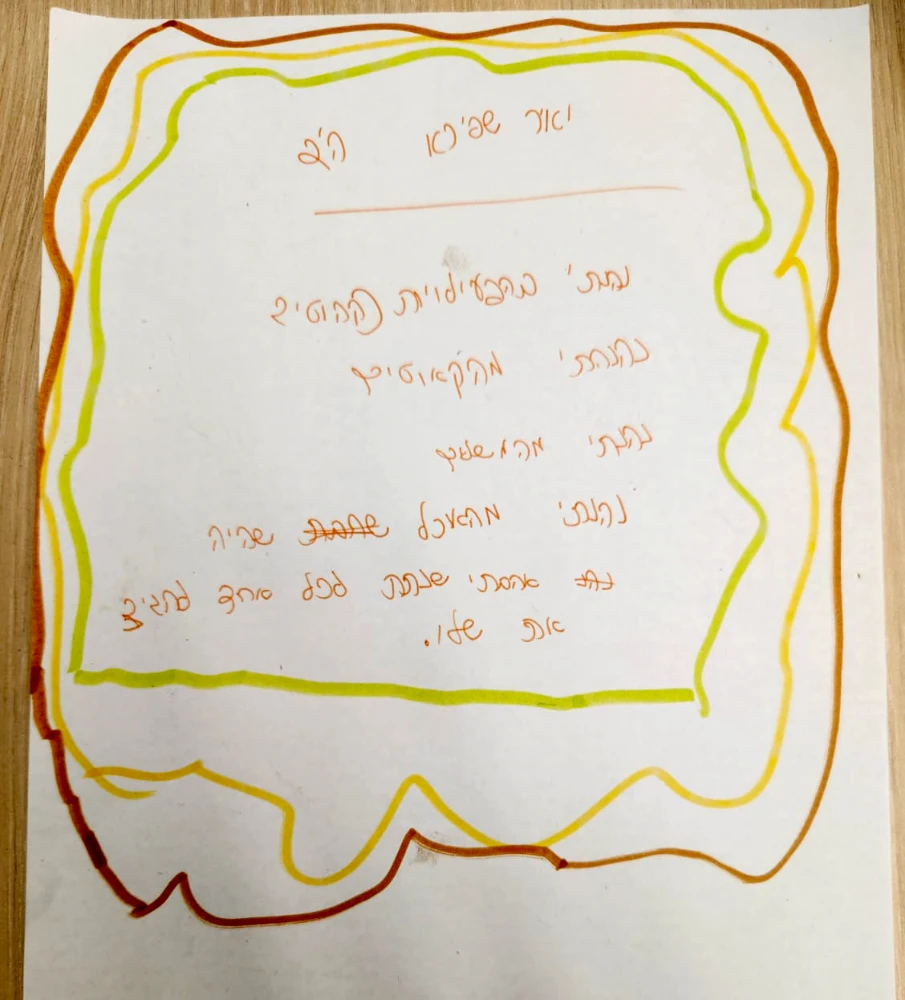 יאיר שפירא ה'2
נהנתי מהפעילויות
נהנתי מה
נהנתי מהמשחקים
נהנתי מהאוכל שהיה
אהבתי שנתת לכל אחד להגיד
את שלו.